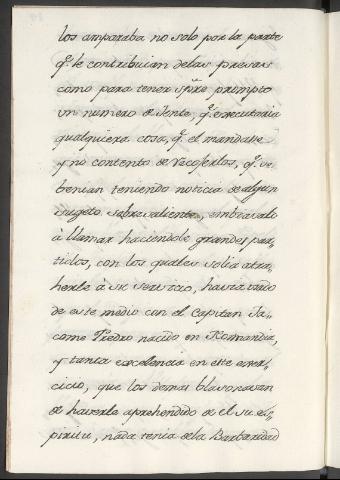 los amparaba no solo por la parte
q.e le contribuian de las presas
como para tener spre prompto
un numero de Jente, q.e executaria
qualquiera cosa, q.e el mandase
y no contento de recoserlos, q.e ve-
benian teniendo noticia de algun
sugeto sobresaliente, embiavalo
à llamar haciendole grandes par-
tidos, con los quales solia atra-
herle à su servicio, havia usado
de este medio con el Capitan Ja-
come Piedro nacido en Normandia,
y tanta excelencia en este exer-
cicio, que los demas blasonavan
de haverle aprehendido de el su es-
piritu, nada tenia de la Barbaridad